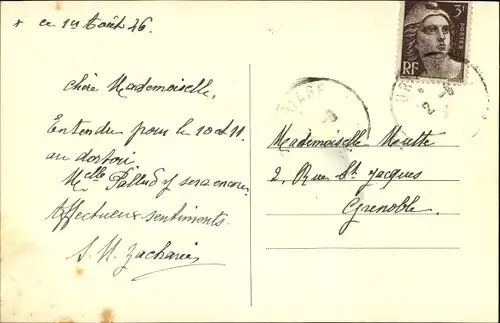 ce 1er Août 46.
Chère Mademoiselle,
Entendu pour le 10 et 11
au dortoir
Melle Pallud y sera encore.
Affectueux sentiments.
S. M. Zacharie
3F
POSTES
RF
Mademoiselle
2, Rue St Jacques
Grenoble.